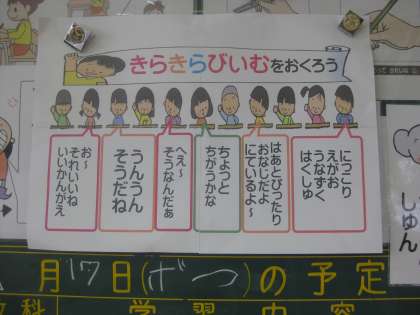 きらきらびいむをおくろう
にっこり
えがお
うなずく
はくしゅ
はあとぴったり
おなじだよ
にているよ～
ちょっと
ちがうかな
へえ～
そうなんだぁ
うんうん
そうだね
お～
それいいね
いいかんがえ
しゅん
月17日(げつ)の予定
教科
学習内容